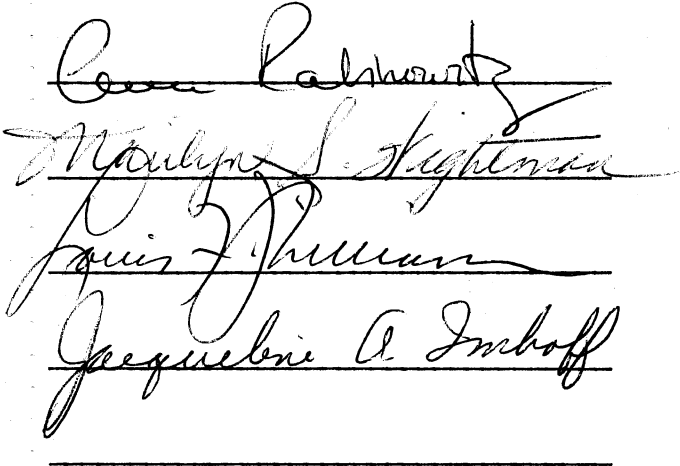 Rabinowitz
Marilyn S. Wightman
Louis F.
Jacqueline A Imhoff